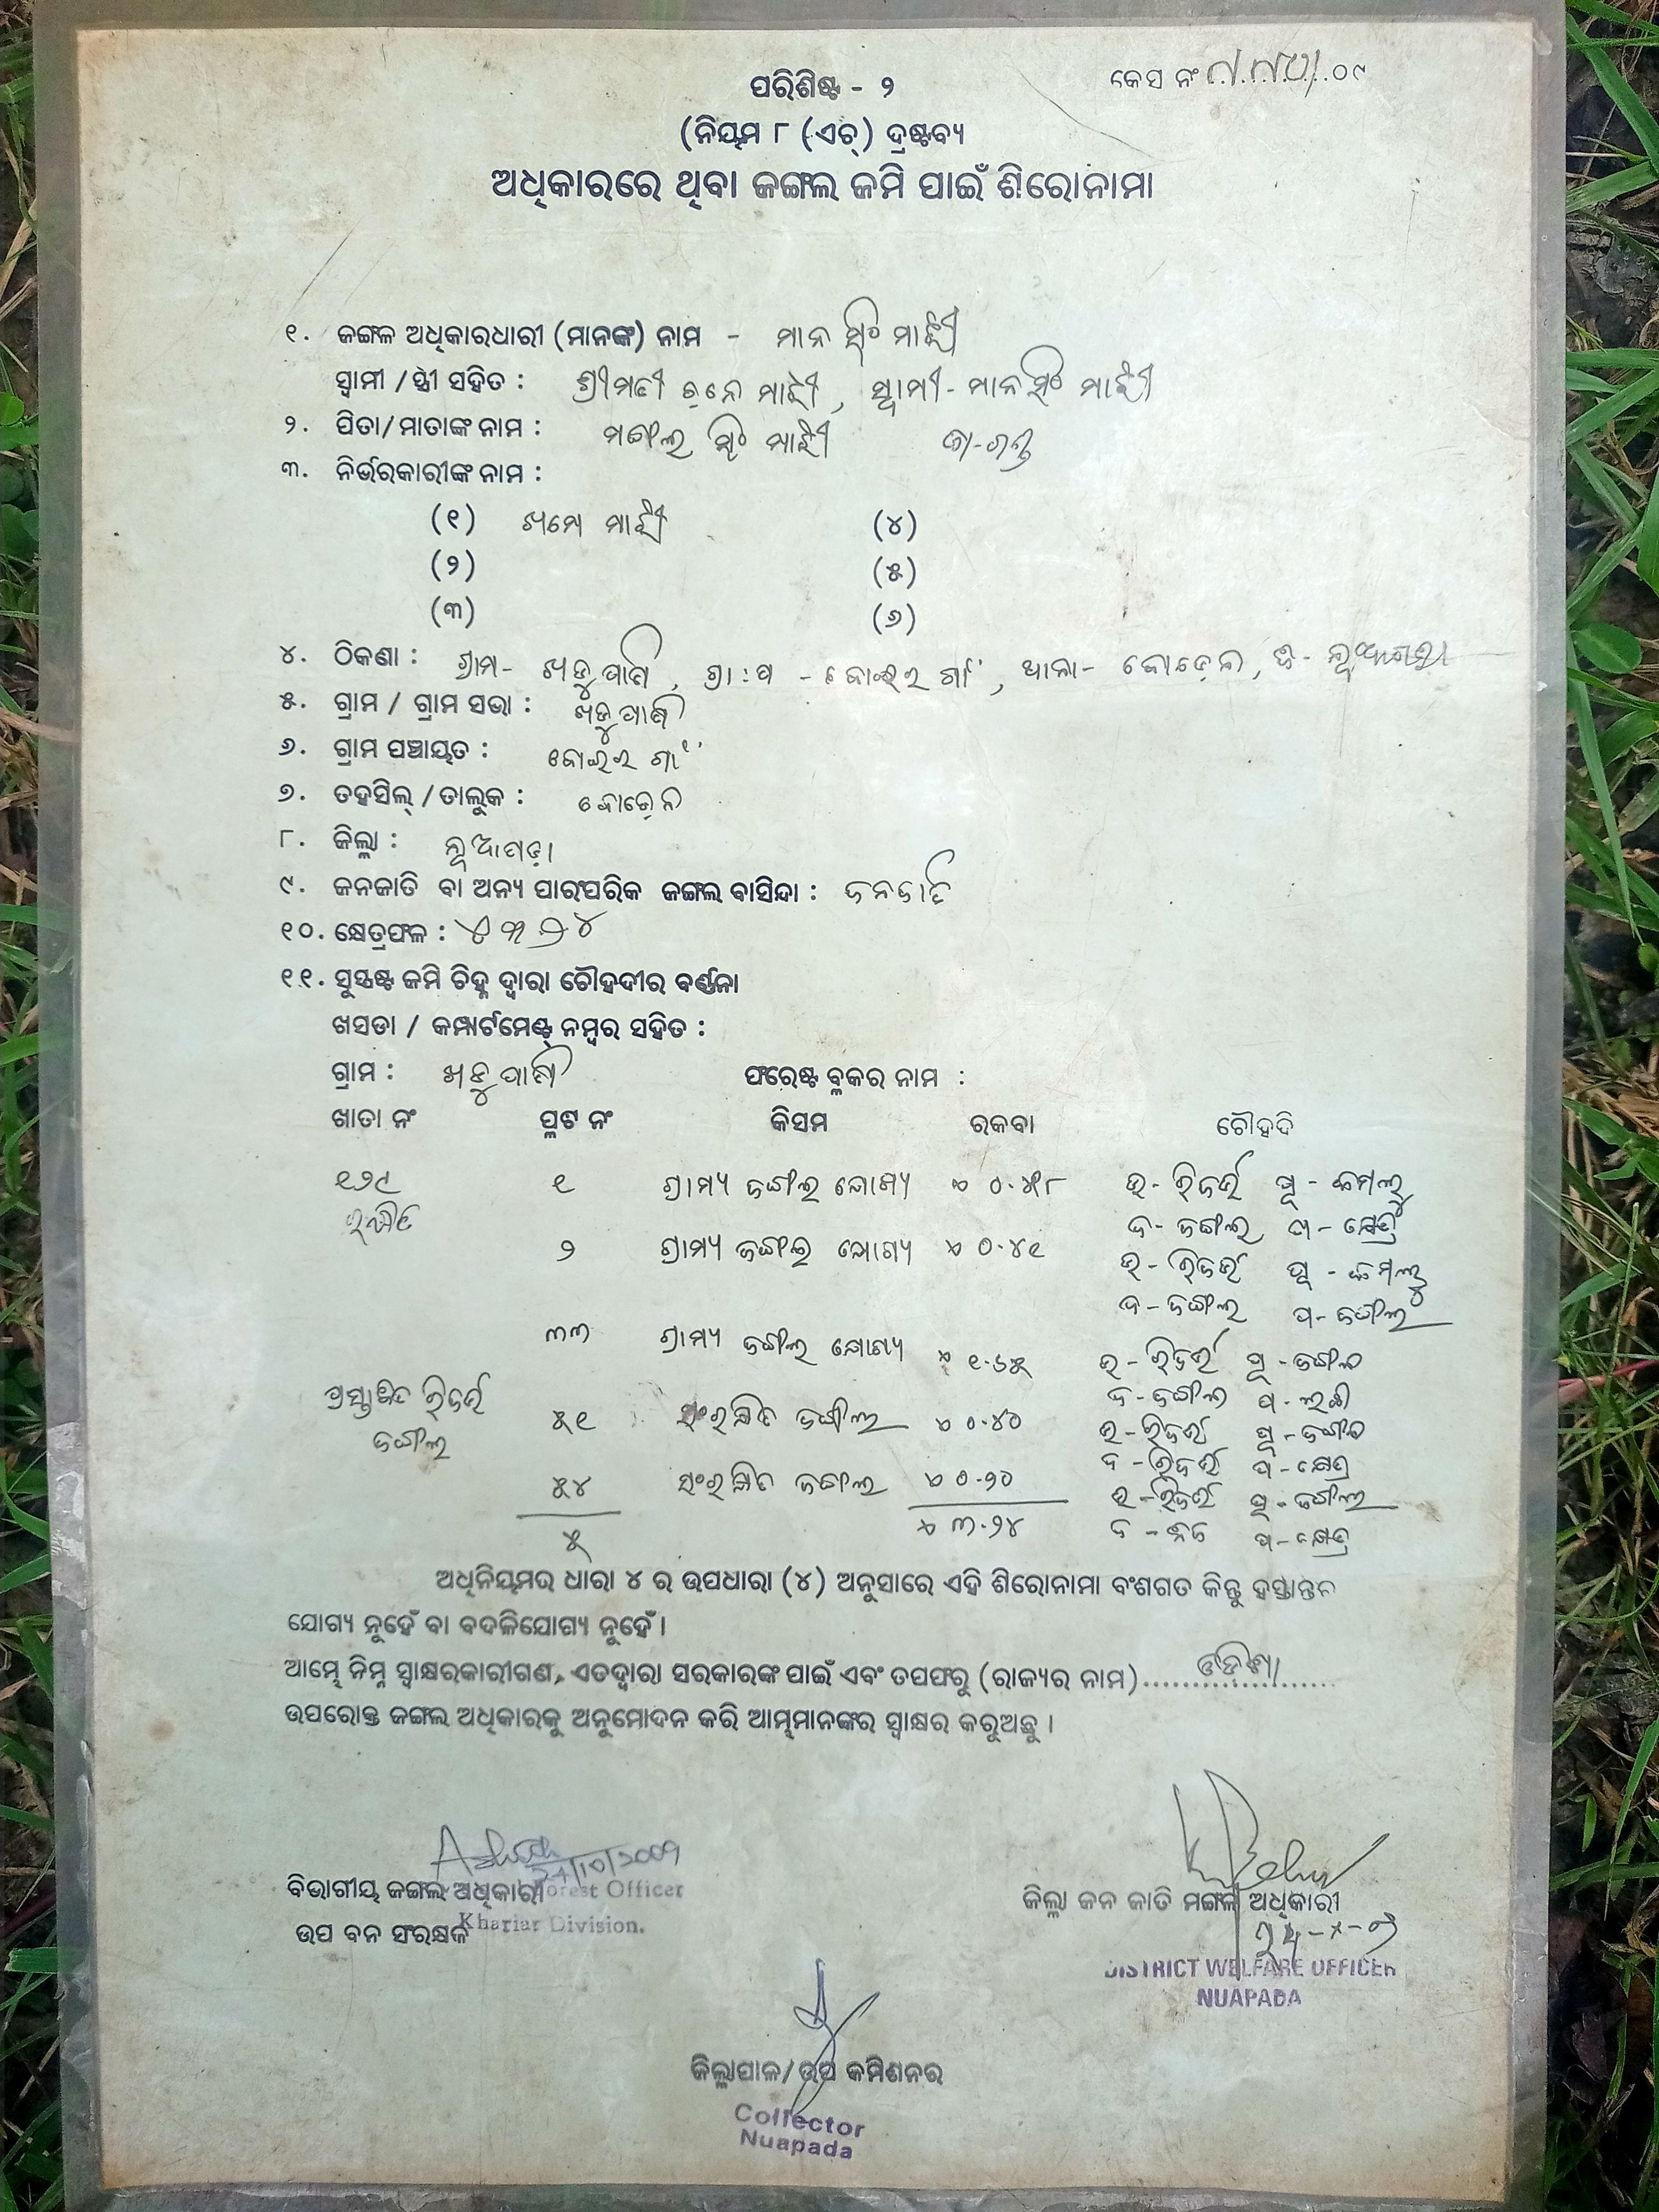 ପରିଶିଷ୍ଟ - ୨
କେସ ନଂ ୦୯
(ନିୟମ ୮ (ଏଚ୍) ଦ୍ରଷ୍ଟବ୍ୟ
ଅଧିକାରରେ ଥିବା ଜଙ୍ଗଲ ଜମି ପାଇଁ ଶିରୋନାମା
୧. ଜଙ୍ଗଳ ଅଧିକାରଧାରୀ (ମାନଙ୍କ) ନାମ - ମାନ ସିଂ ମାଝୀ
ସ୍ୱାମୀ / ସ୍ତ୍ରୀ ସହିତ : ଶ୍ରୀମତୀ ମାଝୀ, ସ୍ୱାମୀ - ମାନସିଂ ମାଝୀ
୨. ପିତା/ମାତାଙ୍କ ନାମ : ମଙ୍ଗଲ ସିଂ ମାଝୀ ଜା-ଗଣ୍ଡ
୩. ନିର୍ଭରକାରୀଙ୍କ ନାମ :
(୧) ମାଝୀ (୪)
(୨) (୫)
(୩) (୬)
୪. ଠିକଣା : ଗ୍ରାମ- ଖଡୁପାଣି, ଗ୍ରା:ପ - , ଥାନା- , ଜି- ନୂଆପଡ଼ା
୫. ଗ୍ରାମ / ଗ୍ରାମ ସଭା : ଖଡୁପାଣି
୬. ଗ୍ରାମ ପଞ୍ଚାୟତ :
୭. ତହସିଲ୍ / ତାଲୁକ :
୮. ଜିଲ୍ଲା : ନୂଆପଡ଼ା
୯. ଜନଜାତି ବା ଅନ୍ୟ ପାରଂପରିକ ଜଙ୍ଗଲ ବାସିନ୍ଦା : ଜନଜାତି
୧୦. କ୍ଷେତ୍ରଫଳ : ୩.୨୪
୧୧. ସୁସ୍ପଷ୍ଟ ଜମି ଚିହ୍ନ ଦ୍ୱାରା ଚୌହଦୀର ବର୍ଣ୍ଣନା
ଖସଡା / କମ୍ପାର୍ଟମେଣ୍ଟ୍ ନମ୍ବର ସହିତ :
ଗ୍ରାମ : ଖଡୁପାଣି ଫରେଷ୍ଟ ବ୍ଲକର ନାମ :
ଖାତା ନଂ ପ୍ଳଟ ନଂ କିସମ ରକବା ଚୌହଦି
୧୨୯ ୧ ଗ୍ରାମ୍ୟ ଜଙ୍ଗଲ ଯୋଗ୍ୟ ୦.୫୮ ଉ- ରିଜର୍ଭ ପୂ -
ରକ୍ଷିତ ଦ- ଜଙ୍ଗଲ, ପ - କ୍ଷେତ୍ର
୨ ଗ୍ରାମ୍ୟ ଜଙ୍ଗଲ ଯୋଗ୍ୟ ୦.୪୧ ଉ - ରିଜର୍ଭ ପୂ -
ଦ- ଜଙ୍ଗଲ ପ- ଜଙ୍ଗଲ
୩୩ ଗ୍ରାମ୍ୟ ଜଙ୍ଗଲ ଯୋଗ୍ୟ ୧.୬୫ ଉ - ରିଜର୍ଭ ପୂ - ଜଙ୍ଗଲ
ଦ- ଜଙ୍ଗଲ ପ- ଲଛୀ
ପ୍ରସ୍ତାବିତ ରିଜର୍ଭ ୫୧ ସଂରକ୍ଷିତ ଜଙ୍ଗଲ ୦.୪୦ ଉ- ରିଜର୍ଭ ପୂ - ଜଙ୍ଗଲ
ଜଙ୍ଗଲ ଦ - ରିଜର୍ଭ ପ- କ୍ଷେତ୍ର
୫୪ ସଂରକ୍ଷିତ ଜଙ୍ଗଲ ୦.୨୦ ଉ - ରିଜର୍ଭ ପୂ - ଜଙ୍ଗଲ
୫ ୩.୨୪ ଦ - ପ- କ୍ଷେତ୍ର
ଅଧିନିୟମର ଧାରା ୪ ର ଉପଧାରା (୪) ଅନୁସାରେ ଏହି ଶିରୋନାମା ବଂଶଗତ କିନ୍ତୁ ହସ୍ତାନ୍ତର
ଯୋଗ୍ୟ ନୁହେଁ ବା ବଦଳିଯୋଗ୍ୟ ନୁହେଁ ।
ଆମ୍ଭେ ନିମ୍ନ ସ୍ୱାକ୍ଷରକାରୀଗଣ, ଏତଦ୍ୱାରା ସରକାରଙ୍କ ପାଇଁ ଏବଂ ତପଫରୁ (ରାଜ୍ୟର ନାମ) ଓଡିଶା
ଉପରୋକ୍ତ ଜଙ୍ଗଲ ଅଧିକାରକୁ ଅନୁମୋଦନ କରି ଆମ୍ଭମାନଙ୍କର ସ୍ୱାକ୍ଷର କରୁଅଛୁ ।
24/10/2009
ବିଭାଗୀୟ ଜଙ୍ଗଲ ଅଧିକାରୀ Forest Officer
ଉପ ବନ ସଂରକ୍ଷକ Khariar Division.
ଜିଲ୍ଲା ଜନ ଜାତି ମଙ୍ଗଳ ଅଧିକାରୀ
DISTRICT WELFARE OFFICER
NUAPADA
ଜିଲ୍ଲାପାଳ/ଉପ କମିଶନର
Collector
Nuapada